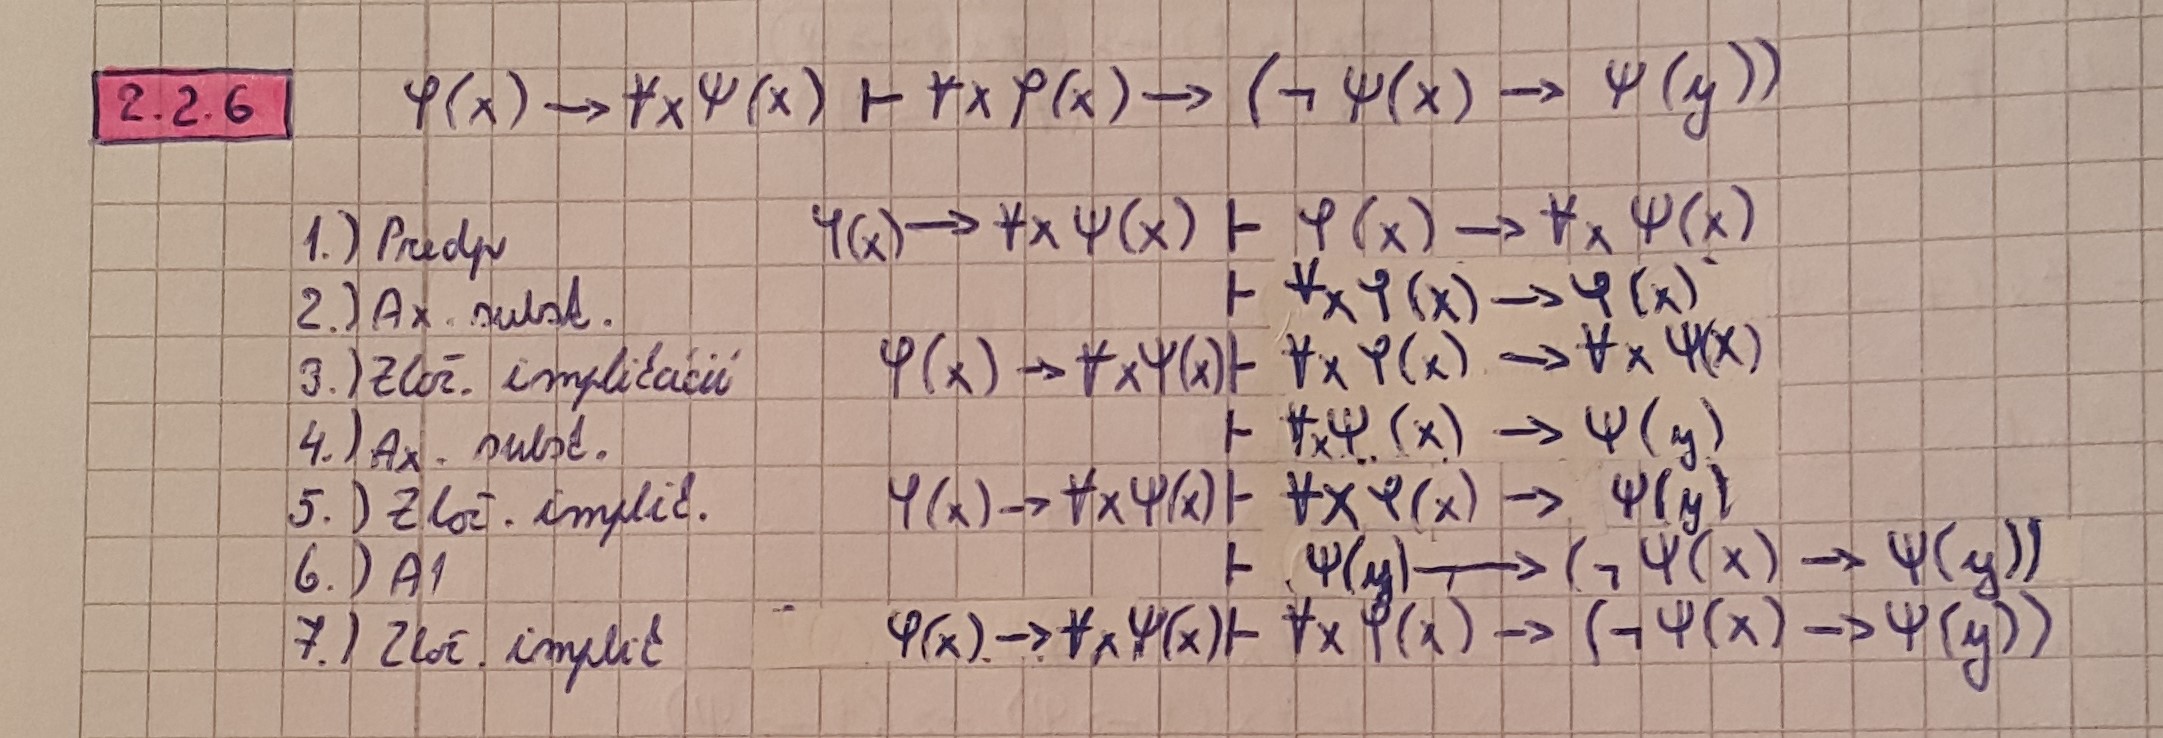 2.2.6 φ(x) → ∀x Ψ(x) ⊢ ∀x φ(x) → (¬ Ψ(x) → Ψ(y))
1.) Predp φ(x) → ∀x Ψ(x) ⊢ φ(x) → ∀x Ψ(x)
2.) Ax. subst. ⊢ ∀x φ(x) → φ(x)
3.) Zlož. implikácií φ(x) → ∀x Ψ(x) ⊢ ∀x φ(x) → ∀x Ψ(x)
4.) Ax. subst. ⊢ ∀x Ψ(x) → Ψ(y)
5.) Zlož. implik. φ(x) → ∀x Ψ(x) ⊢ ∀x φ(x) → Ψ(y)
6.) A1 ⊢ Ψ(y) → (¬ Ψ(x) → Ψ(y))
7.) Zlož. implik φ(x) → ∀x Ψ(x) ⊢ ∀x φ(x) → (¬ Ψ(x) → Ψ(y))